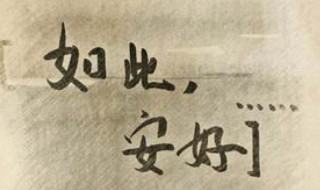 如此，
……
安好]